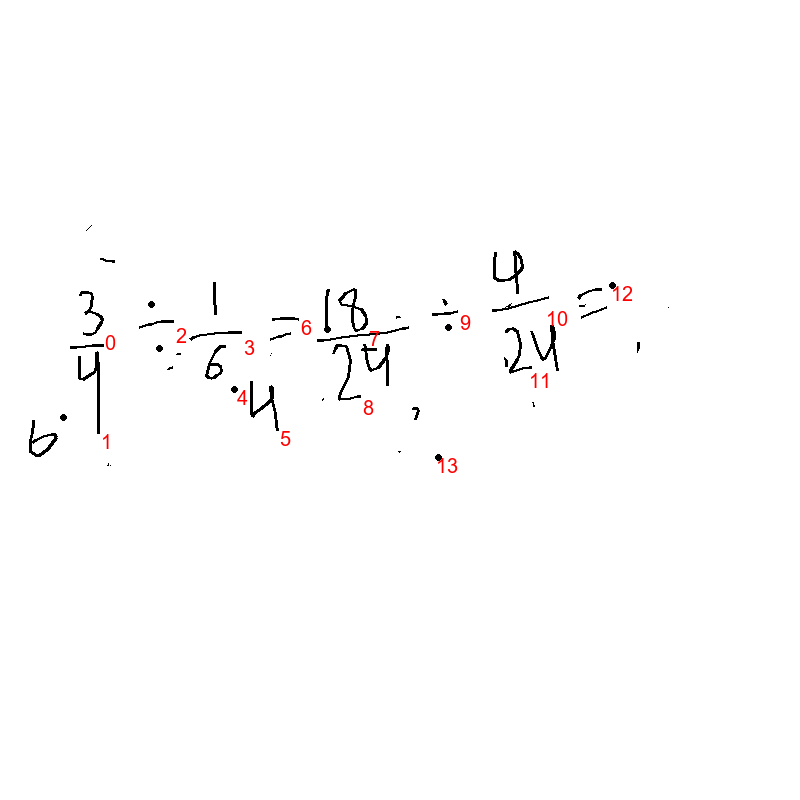 3/4 ÷ 1/6 = 18/24 ÷ 4/24 =
6· ·4
0 1 2 3 4 5 6 7 8 9 10 11 12 13